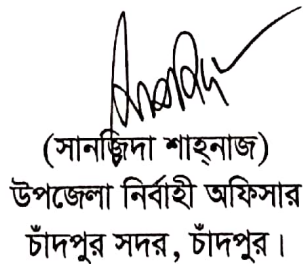 (সানজিদা শাহ্‌নাজ)
উপজেলা নির্বাহী অফিসার
চাঁদপুর সদর, চাঁদপুর।